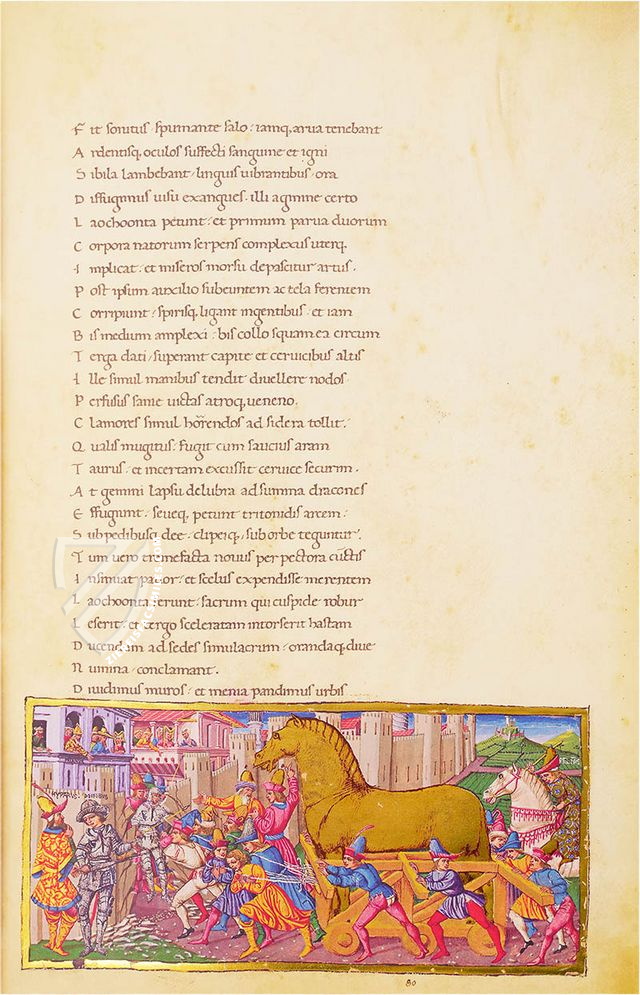 F it sonitus spumante salo : iamq, arua tenebant
A rdentisq, oculos suffecti sanguine et igni
S ibila lambebant linguis uibrantibus ora
D iffugimus uisu exangues. illi agmine certo
L aochoonta petunt : et primum parua duorum
C orpora natorum serpens complexus uterq,
I mplicat : et miseros morsu depascitur artus.
P ost ipsum auxilio subeuntem ac tela ferentem
C orripiunt : spirisq, ligant ingentibus : et iam
B is medium amplexi : bis collo squamea circum
T erga dati, superant capite et ceruicibus altis
I lle simul manibus tendit diuellere nodos
P erfusus sanie uictas atroq, ueneno.
C lamores simul horrendos ad sidera tollit.
Q ualis mugitus : fugit cum saucius aram
T aurus : et incertam excussit ceruice securim.
A t gemini lapsu delubra ad summa dracones
E ffugiunt : seueq, petunt tritonidis arcem :
S ub pedibusq, dee : clipeiq, sub orbe teguntur.
T um uero tremefacta nouus per pectora cuctis
I nsinuat pauor : et scelus expendisse merentem
L aochoonta ferunt : sacrum qui cuspide robur
L eserit : et tergo sceleratam intorserit hastam
D ucendum ad sedes simulacrum : orandaq, diue
N umina conclamant.
D iuidimus muros : et menia pandimus urbis
80